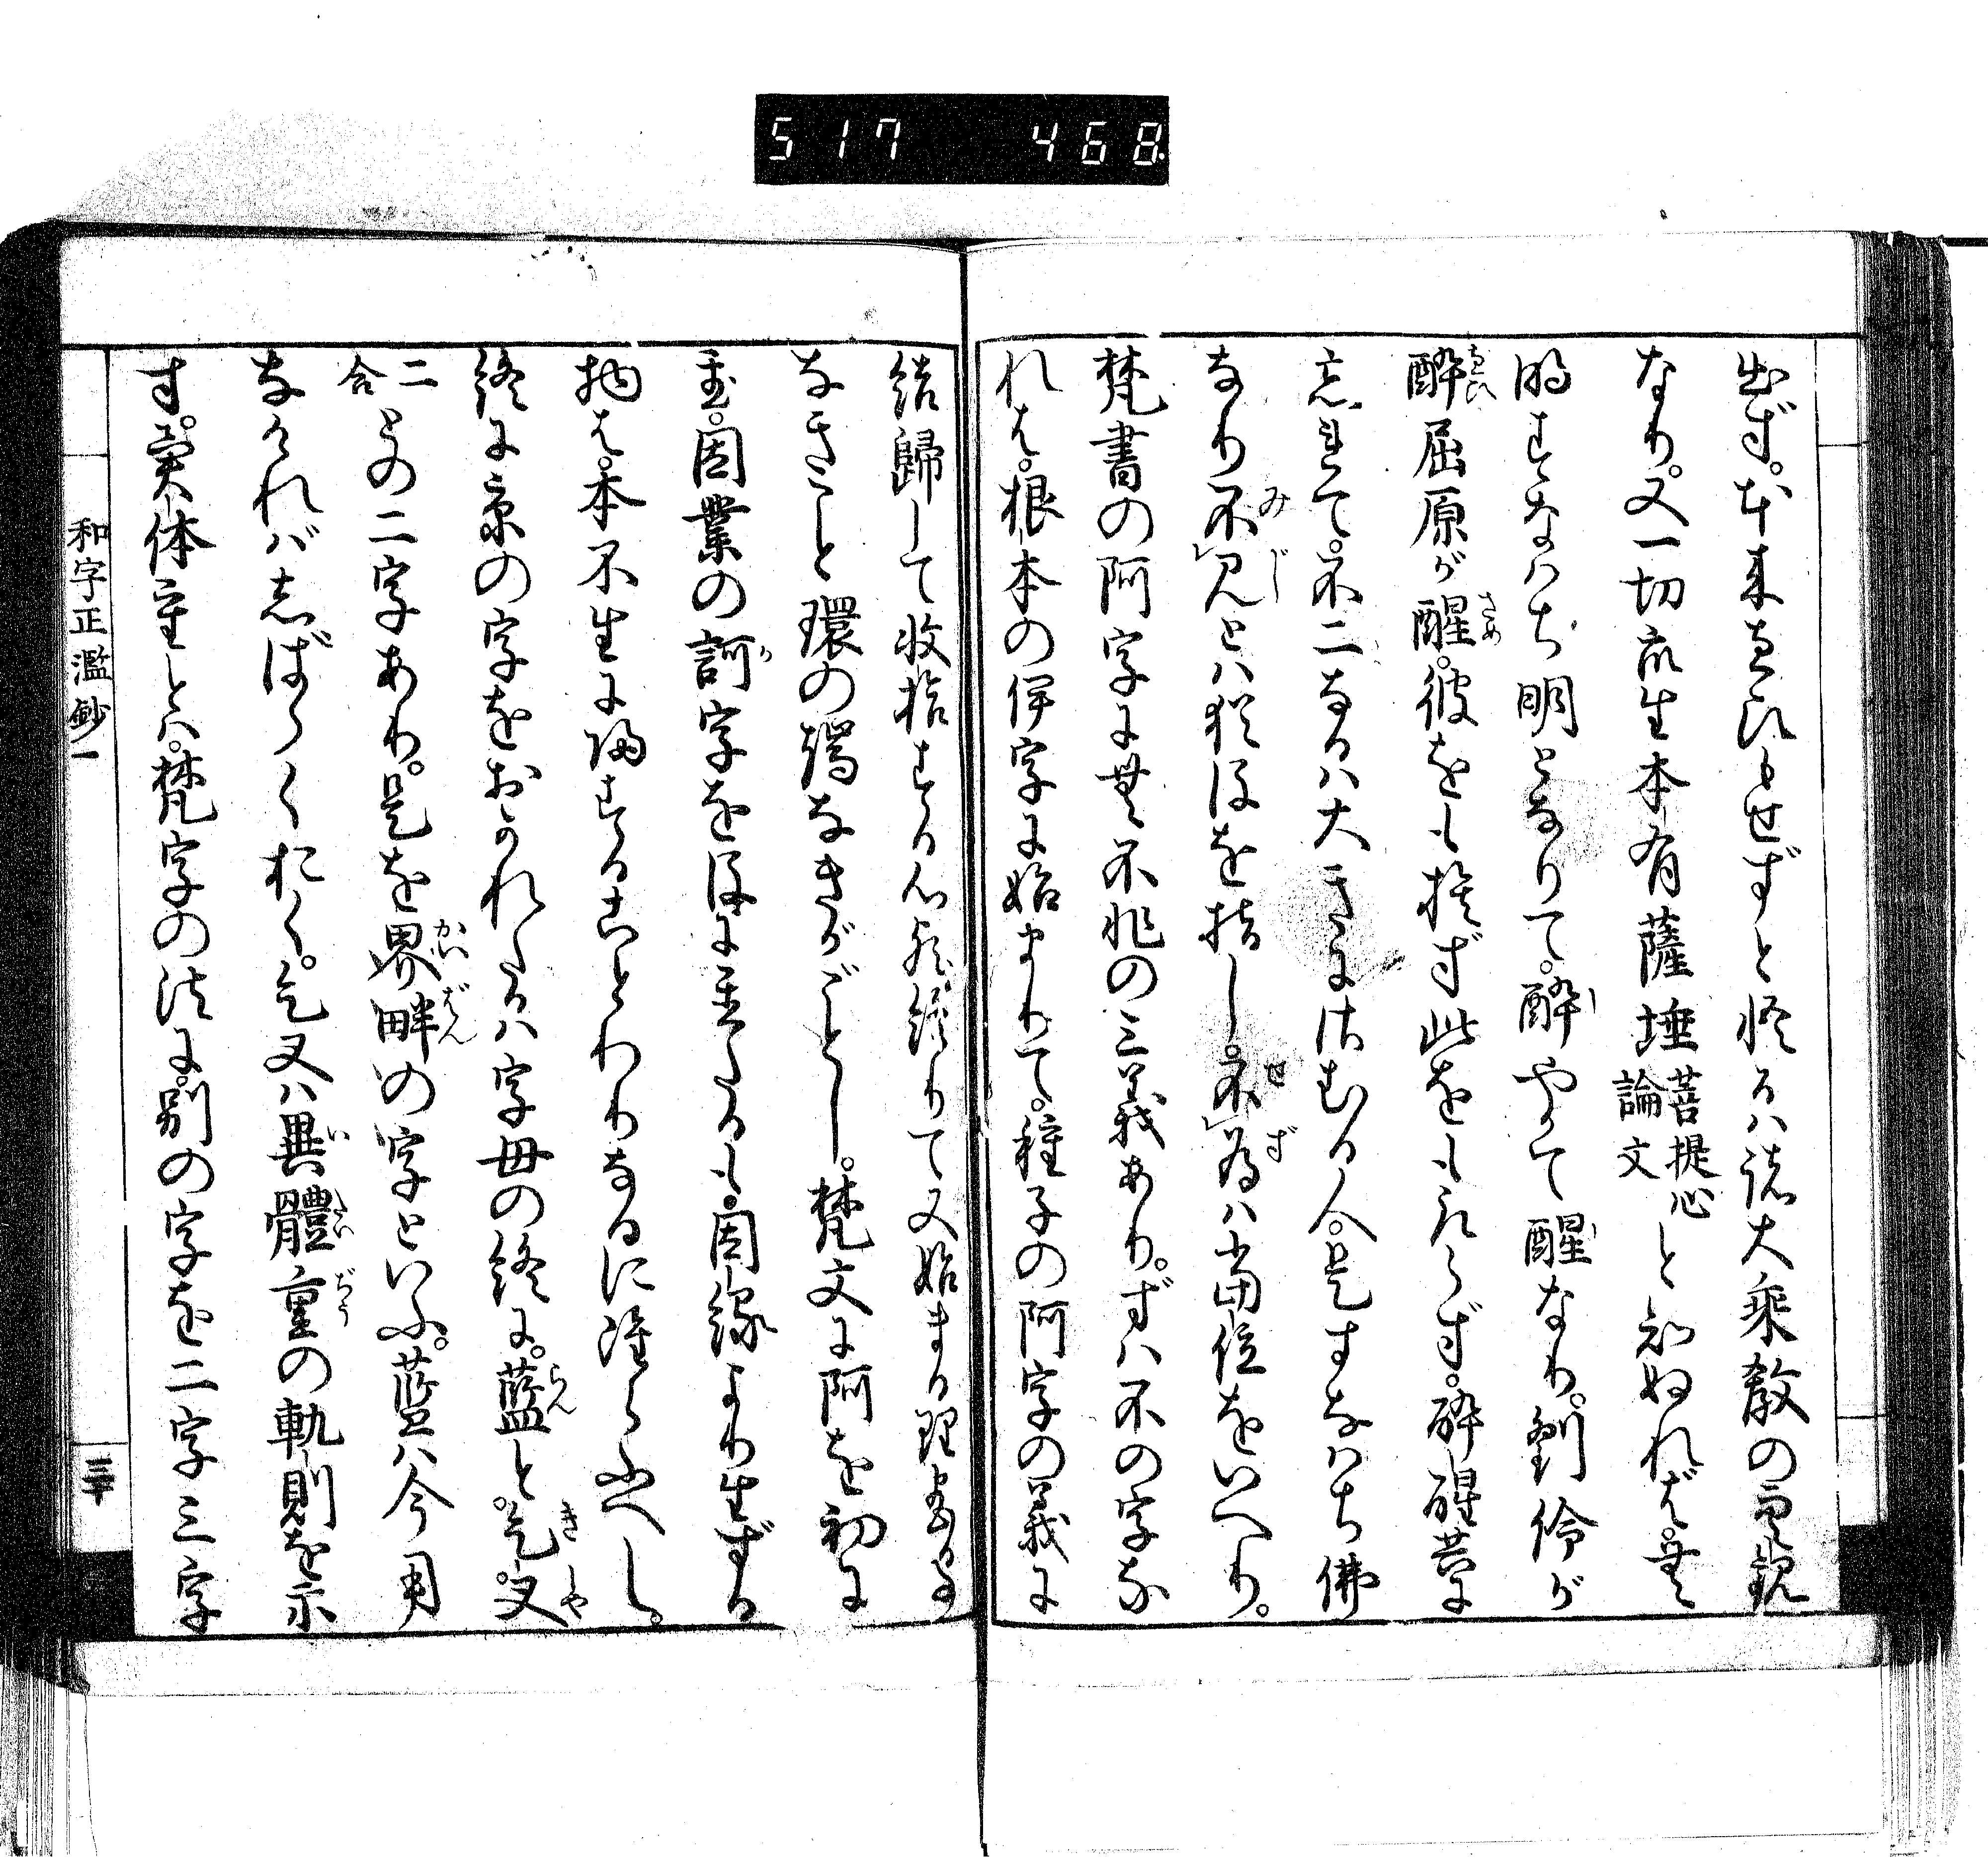 517 468
出ず。本来ゑひもせずと悟るハ諸大乗教の實説
なり。又一切衆生本有薩埵菩提心論文と知ぬれば。無
明すなハち明となりて。酔やがて醒なり。劉伶が
酔屈原が醒。彼をも捨ず此をもとらず。酔醒共に
忘れて。不二なるハ大きに沽むる人。是すなハち佛
なり不見とハ猶ほを指し。不為ハ当位をいへり。
梵書の阿字に無不非の三義あり。ずハ不の字な
れば。根本の伊字に始まりて。種子の阿字の義に
結歸して收括する心終りて又始まる理
なきこと環の端なきがごとし。梵文に阿を初に
至。因業の訶字をほに至たるも。因縁より生ずる
物ハ。本不生に帰することわりなるに准らふべし。
終に京の字をおかれたるハ字母の終に。藍と。乞叉
二合との二字あり。是を界畔の字といふ。藍ハ今用
なければしばらくおく。乞叉ハ異體重の軌則を示
す。異体重とハ。梵字の法に別の字を二字三字
和字正濫鈔一
三十